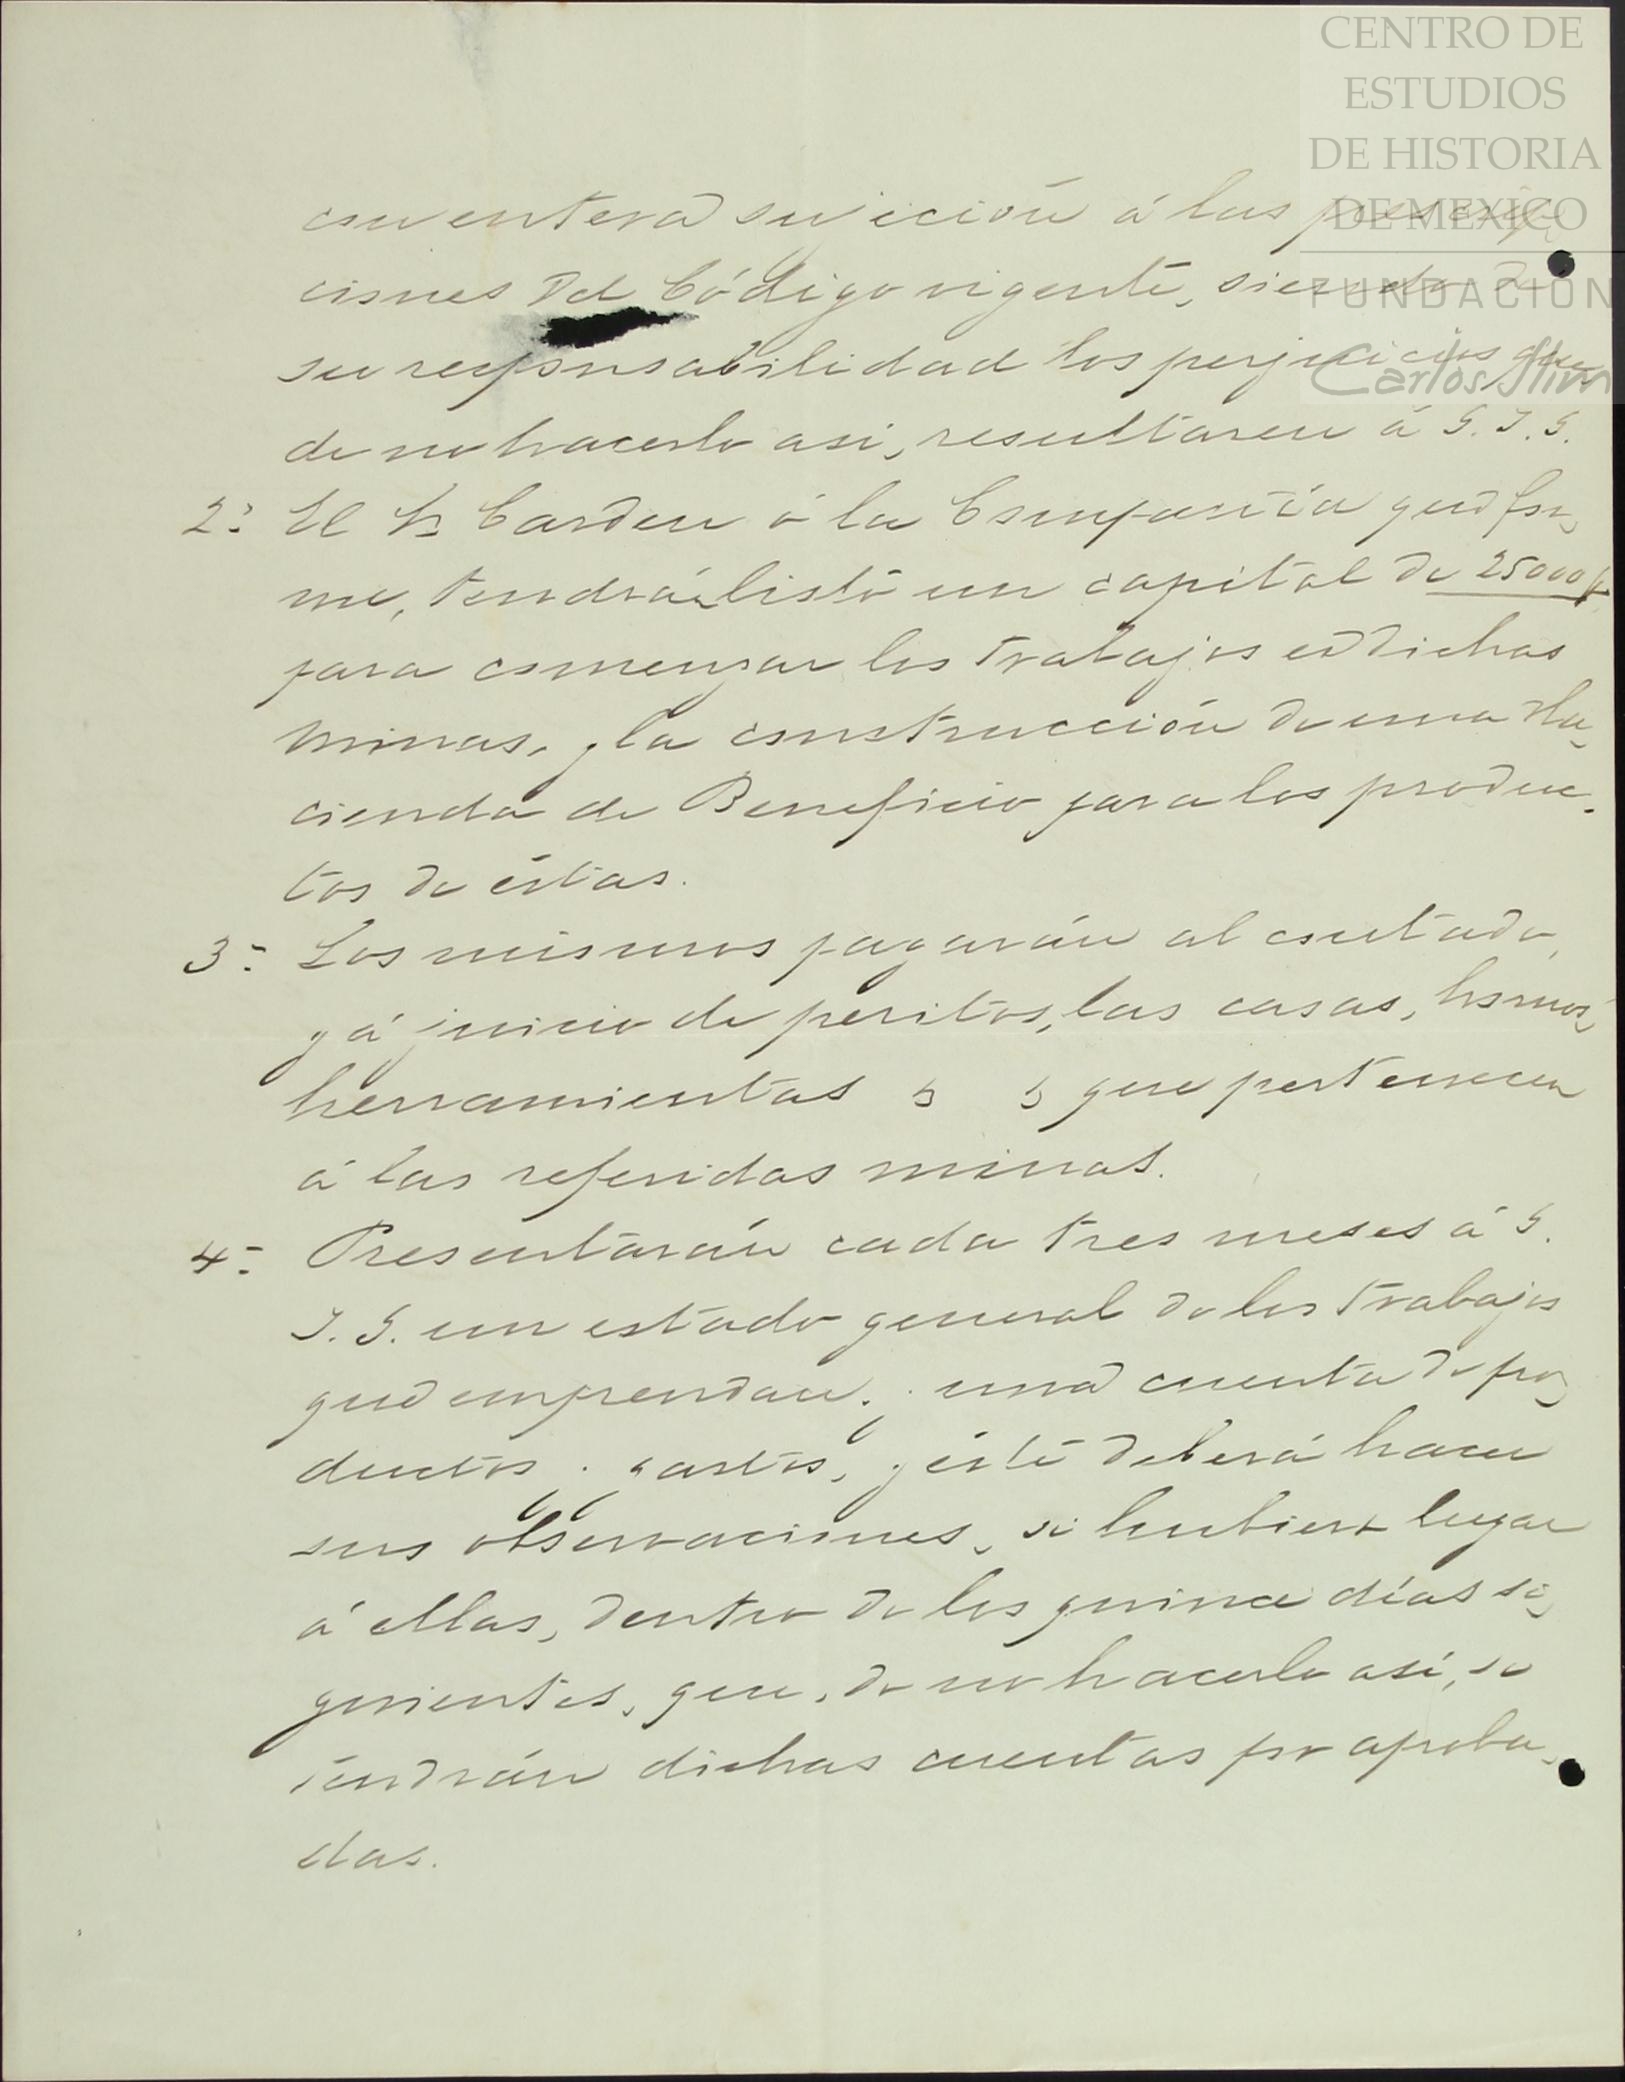 CENTRO DE
ESTUDIOS
DE HISTORIA
DE MEXICO
FUNDACIÓN
Carlos Slim
con entera sujeción á las prescrip-
ciones del Código vigente, siendo de
su responsabilidad los perjuicios que
de no hacerlo asi, resultaren á S. I. S.
2ª El Sr Carden ó la Compañía que for-
me, tendrán listo un capital de 25000 $
para comenzar los trabajos en dichas
minas, y la construcción de una Ha-
cienda de Beneficio para los produc-
tos de éstas.
3ª Los mismos pagarán al contado,
y á juicio de peritos, las casas, hornos,
herramientas que pertenecen
á las referidas minas.
4ª Presentarán cada tres meses á S.
I. S. un estado general de los trabajos
que emprendan y una cuenta de pro-
ductos y gastos, y éste deberá hacer
sus observaciones, si hubiere lugar
á ellas, dentro de los quince días si-
guientes, que, de no hacerlo asi, se
tendrán dichas cuentas por aproba-
das.